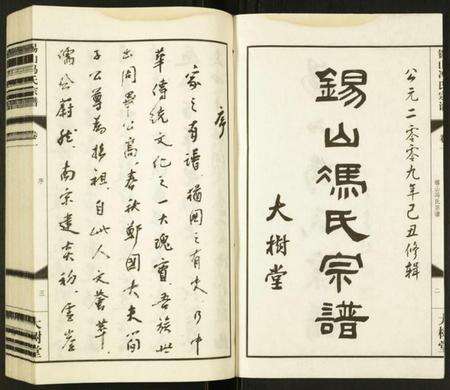 公元二〇〇九年己丑修辑
錫山馮氏宗譜
大樹堂
序
家之有譜，猶國之有史，乃中
華傳統文化之一大瑰寶，吾族世
出周畢公高，春秋鄭國大夫簡
子公尊為始祖，自此人文薈萃，
儒公蔚然，南宋建炎初，雲崖
序
三
大樹堂